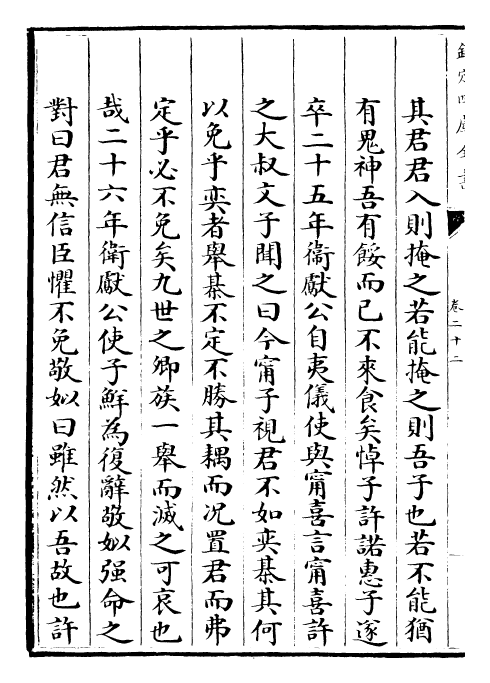 欽定四庫全書
卷二十二
其君君入則掩之若能掩之則吾子也若不能猶
有鬼神吾有餒而已不來食矣悼子許諾惠子遂
卒二十五年衞獻公自夷儀使與甯喜言甯喜許
之大叔文子聞之曰今甯子視君不如奕棊其何
以免乎奕者舉棊不定不勝其耦而况置君而弗
定乎必不免矣九世之卿族一舉而滅之可哀也
哉二十六年衛獻公使子鮮為復辭敬姒强命之
對曰君無信臣懼不免敬姒曰雖然以吾故也許